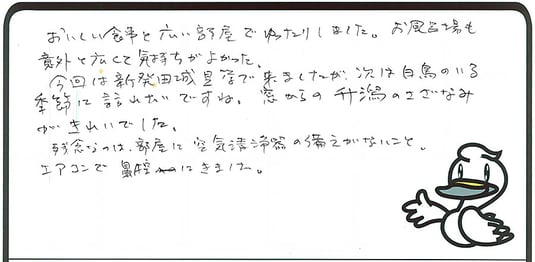 おいしい食事と広い部屋でゆったりしました。お風呂場も
意外と広くて気持ちがよかった。
今回は新発田城見学で来ましたが、次は白鳥のいる
季節に訪れたいですね。窓からの升潟のさざなみ
がきれいでした。
残念なのは、部屋に空気清浄器の備えがないこと。
エアコンで鼻腔にきました。